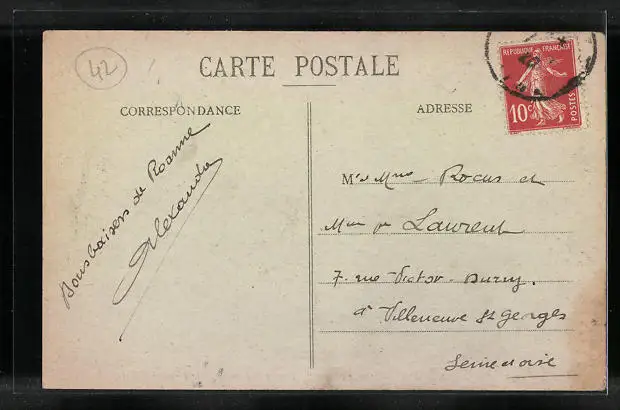 42
CARTE POSTALE
REPUBLIQUE FRANÇAISE
10c
POSTES
CORRESPONDANCE
ADRESSE
Bons baisers de Roanne
Alexandre
M Rocus et
Laurent
7. rue Victor-Duruy.
à Villeneuve St Georges
Seine et oise